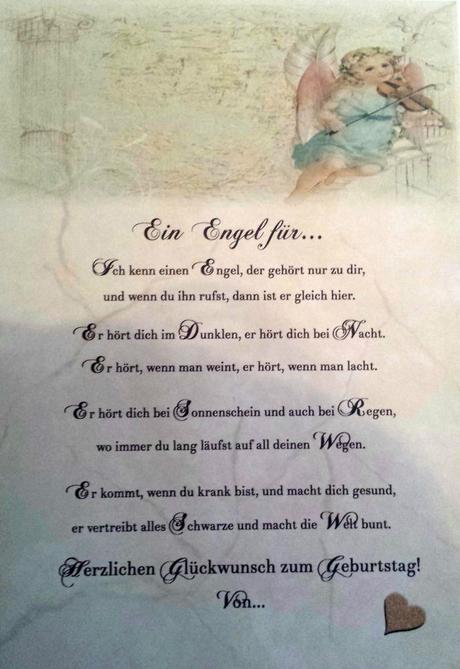 Ein Engel für...
Ich kenn einen Engel, der gehört nur zu dir,
und wenn du ihn rufst, dann ist er gleich hier.
Er hört dich im Dunklen, er hört dich bei Nacht.
Er hört, wenn man weint, er hört, wenn man lacht.
Er hört dich bei Sonnenschein und auch bei Regen,
wo immer du lang läufst auf all deinen Wegen.
Er kommt, wenn du krank bist, und macht dich gesund,
er vertreibt alles Schwarze und macht die Welt bunt.
Herzlichen Glückwunsch zum Geburtstag!
Von...